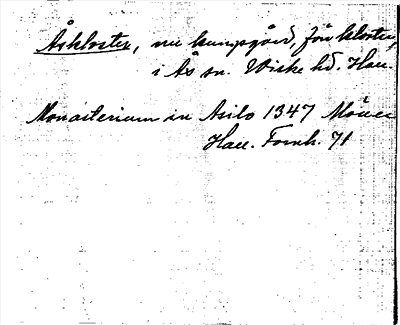 Åskloster, nu kungsgård, förr kloster,
i Ås sn. Wiske hd. Hall.
Monasterium in Asilo 1347
Hall. Fornh. 71